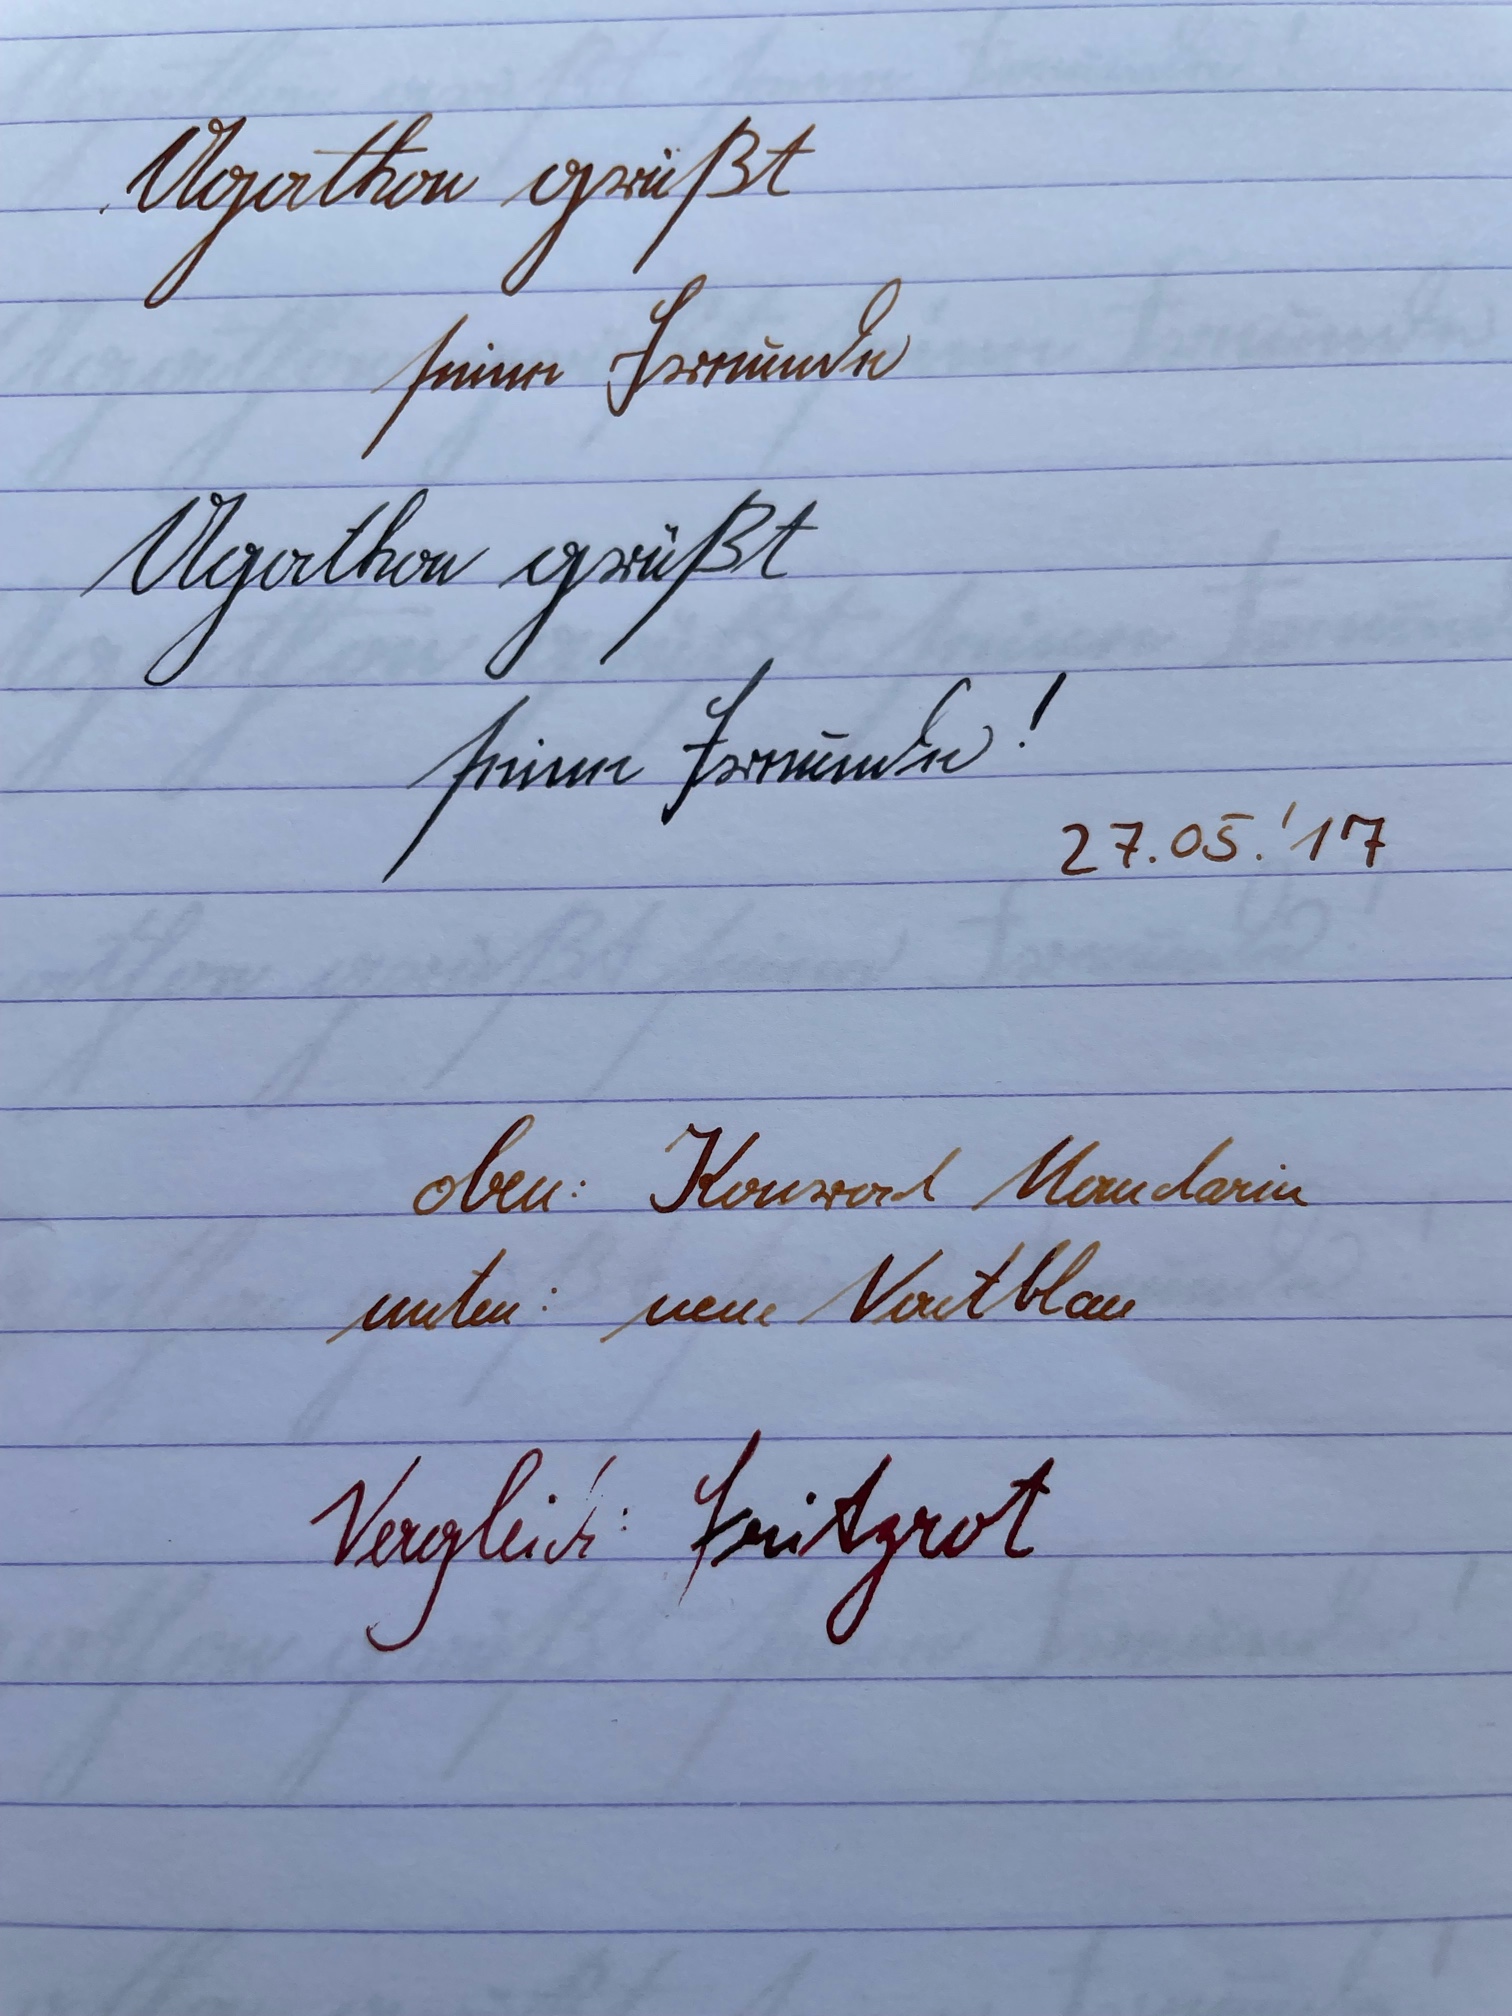 Agathon grüßt
seine Freunde
Agathon grüßt
seine Freunde!
27.05.'17
oben: Konrad Mandarin
unten: neue
Vergleich: Fritzrot